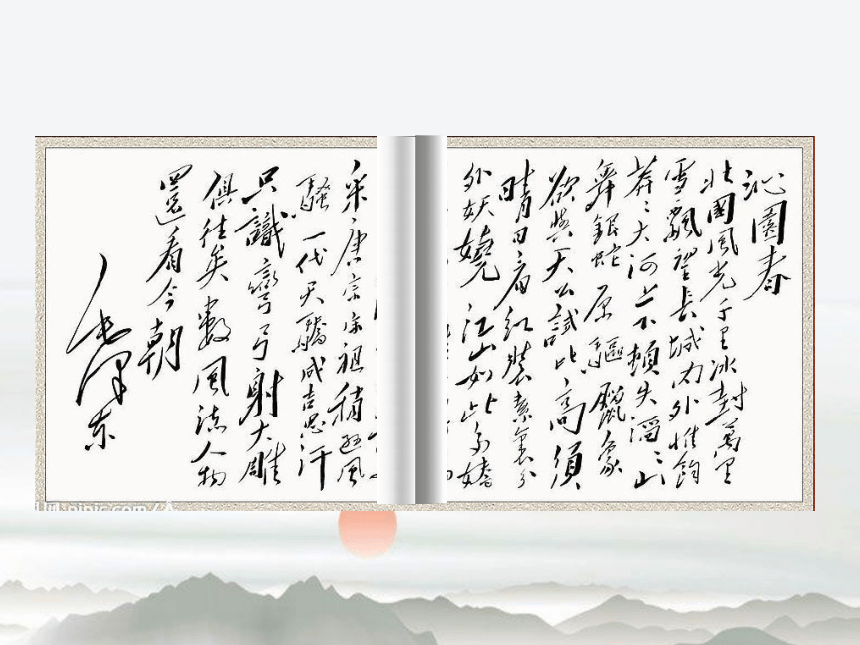 沁園春
北國風光千里冰封萬里
雪飄望長城内外惟餘
莽々大河上下頓失滔々山
舞銀蛇原驅臘象
欲與天公試比高須
晴日看紅裝素裹分
外妖嬈江山如此多嬌
采唐宗宋祖稍遜風
騷一代天驕成吉思汗
只識彎弓射大雕
俱往矣數風流人物
還看今朝
毛澤东